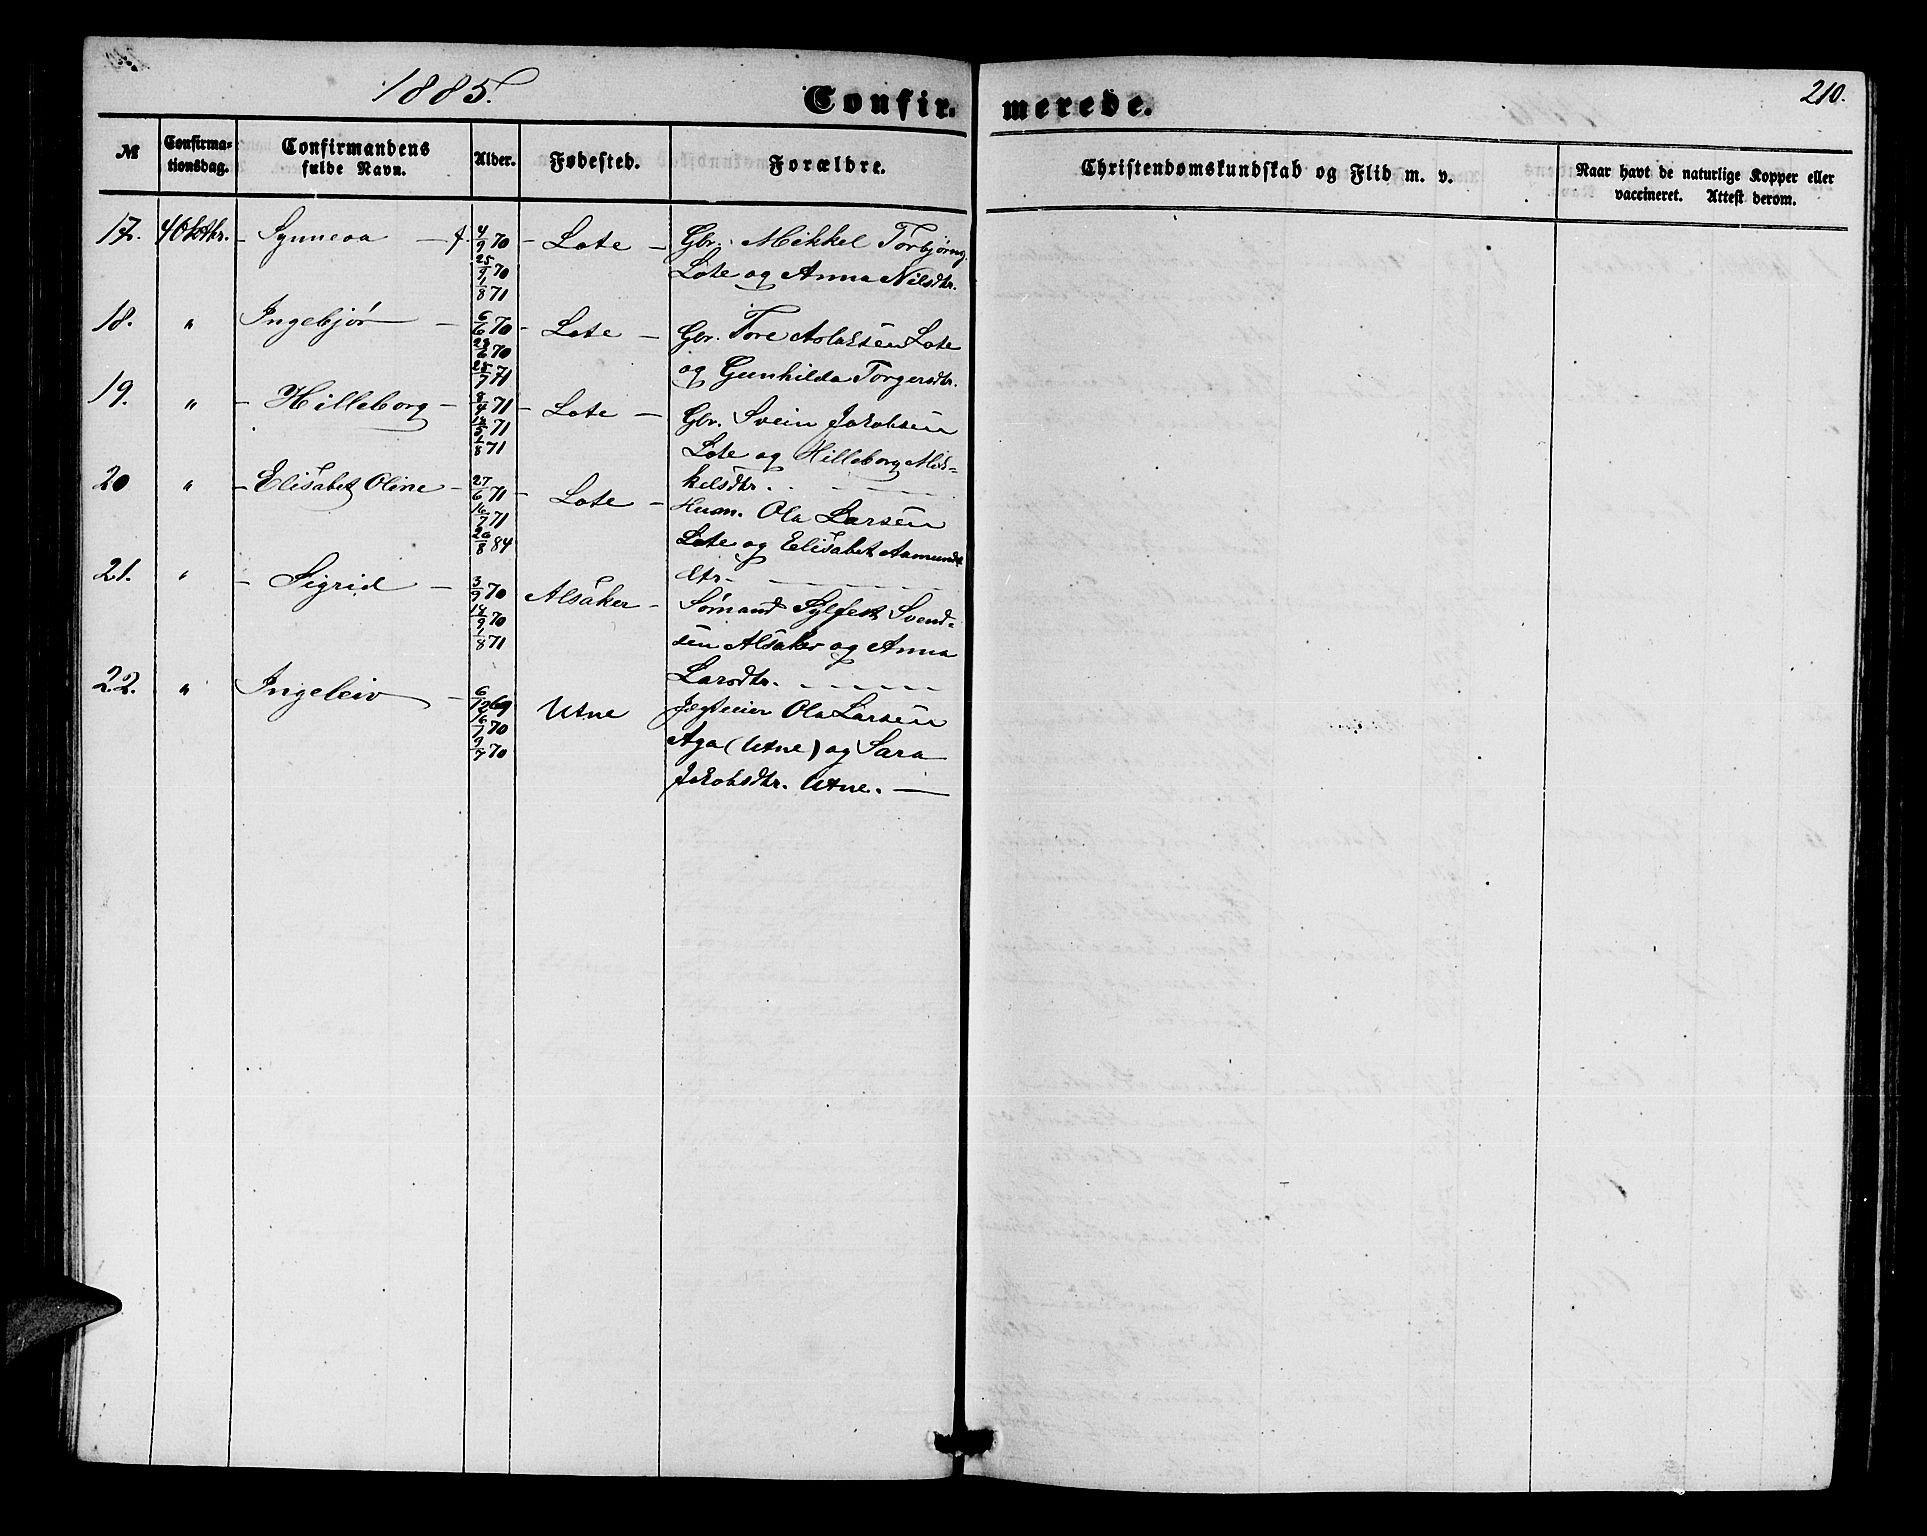 1885.
Confir- merede.
210.
№ Confirma-tionsdag. Confirmandens fulde Navn. Alder. Fødested. Forældre. Christendomskundskab og Flid m. v. Naar havt de naturlige Kopper eller vaccineret. Attest derom.
17. 4 Oktbr. - Synneva 4/9 70 - Lote - Gbr. Mikkel Torbjørns.
25/9 70 Lote og Anna Nilsdtr.
1/8 71
18. " Ingebjør - 6/6 70 - Lote - Gbr. Tore Aslaksen Lote
23/6 70 og Gunhilda Torgersdtr.
25/7 71
19. " - Hilleborg - 8/4 71 - Lote - Gbr. Svein Jakobsen
14/5 71 Lote og Hilleborg Mik-
1/8 71 kelsdtr.
20 " - Elisabet Oline - 27/6 71 - Lote - Husm. Ola Larsen
16/7 71 Lote og Elisabet Aamunds-
26/8 84 dtr.
21. " - Sigrid - 3/9 70 Alsaker - Sømand Sylfest Svend-
14/9 70 sen Alsaker og Anna
1/8 71 Larsdtr.
22. " Ingeleiv - 6/12 69 Utne Jægteeier Ola Larsen
16/7 70 Aga (Utne) og Sara
9/7 70 Jakobsdtr. Utne.